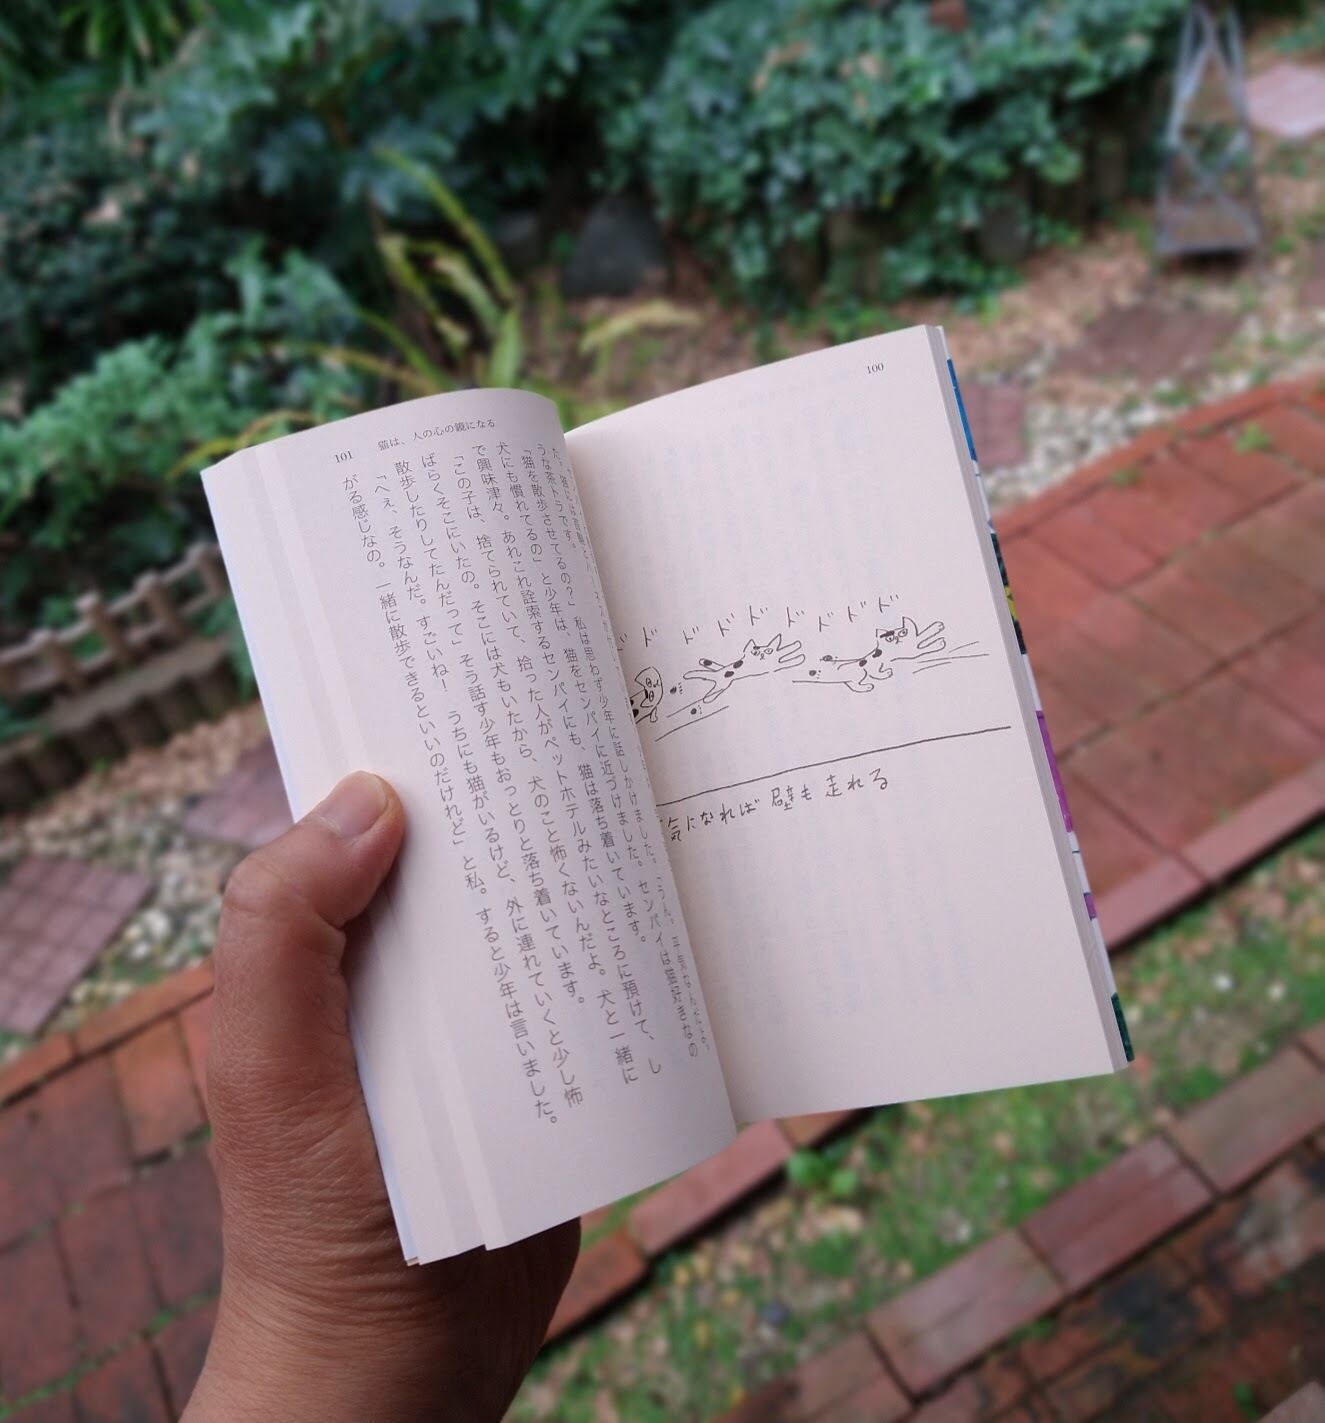 100
ド ド ド ド ド ド ド ド
気になれば 壁も 走れる
101 猫は、人の心の鏡になる
うな茶トラです。
「猫を散歩させてるの？」　私は思わず少年に話しかけました。「うん。平気なんだよ。
犬にも慣れてるの」と少年は、猫をセンパイに近づけました。センパイは猫好きなの
で興味津々。あれこれ詮索するセンパイにも、猫は落ち着いています。
「この子は、捨てられていて、拾った人がペットホテルみたいなところに預けて、し
ばらくそこにいたの。そこには犬もいたから、犬のこと怖くないんだよ。犬と一緒に
散歩したりしてたんだって」そう話す少年もおっとりと落ち着いています。
「へぇ、そうなんだ。すごいね！　うちにも猫がいるけど、外に連れていくと少し怖
がる感じなの。一緒に散歩できるといいのだけれど」と私。すると少年は言いました。